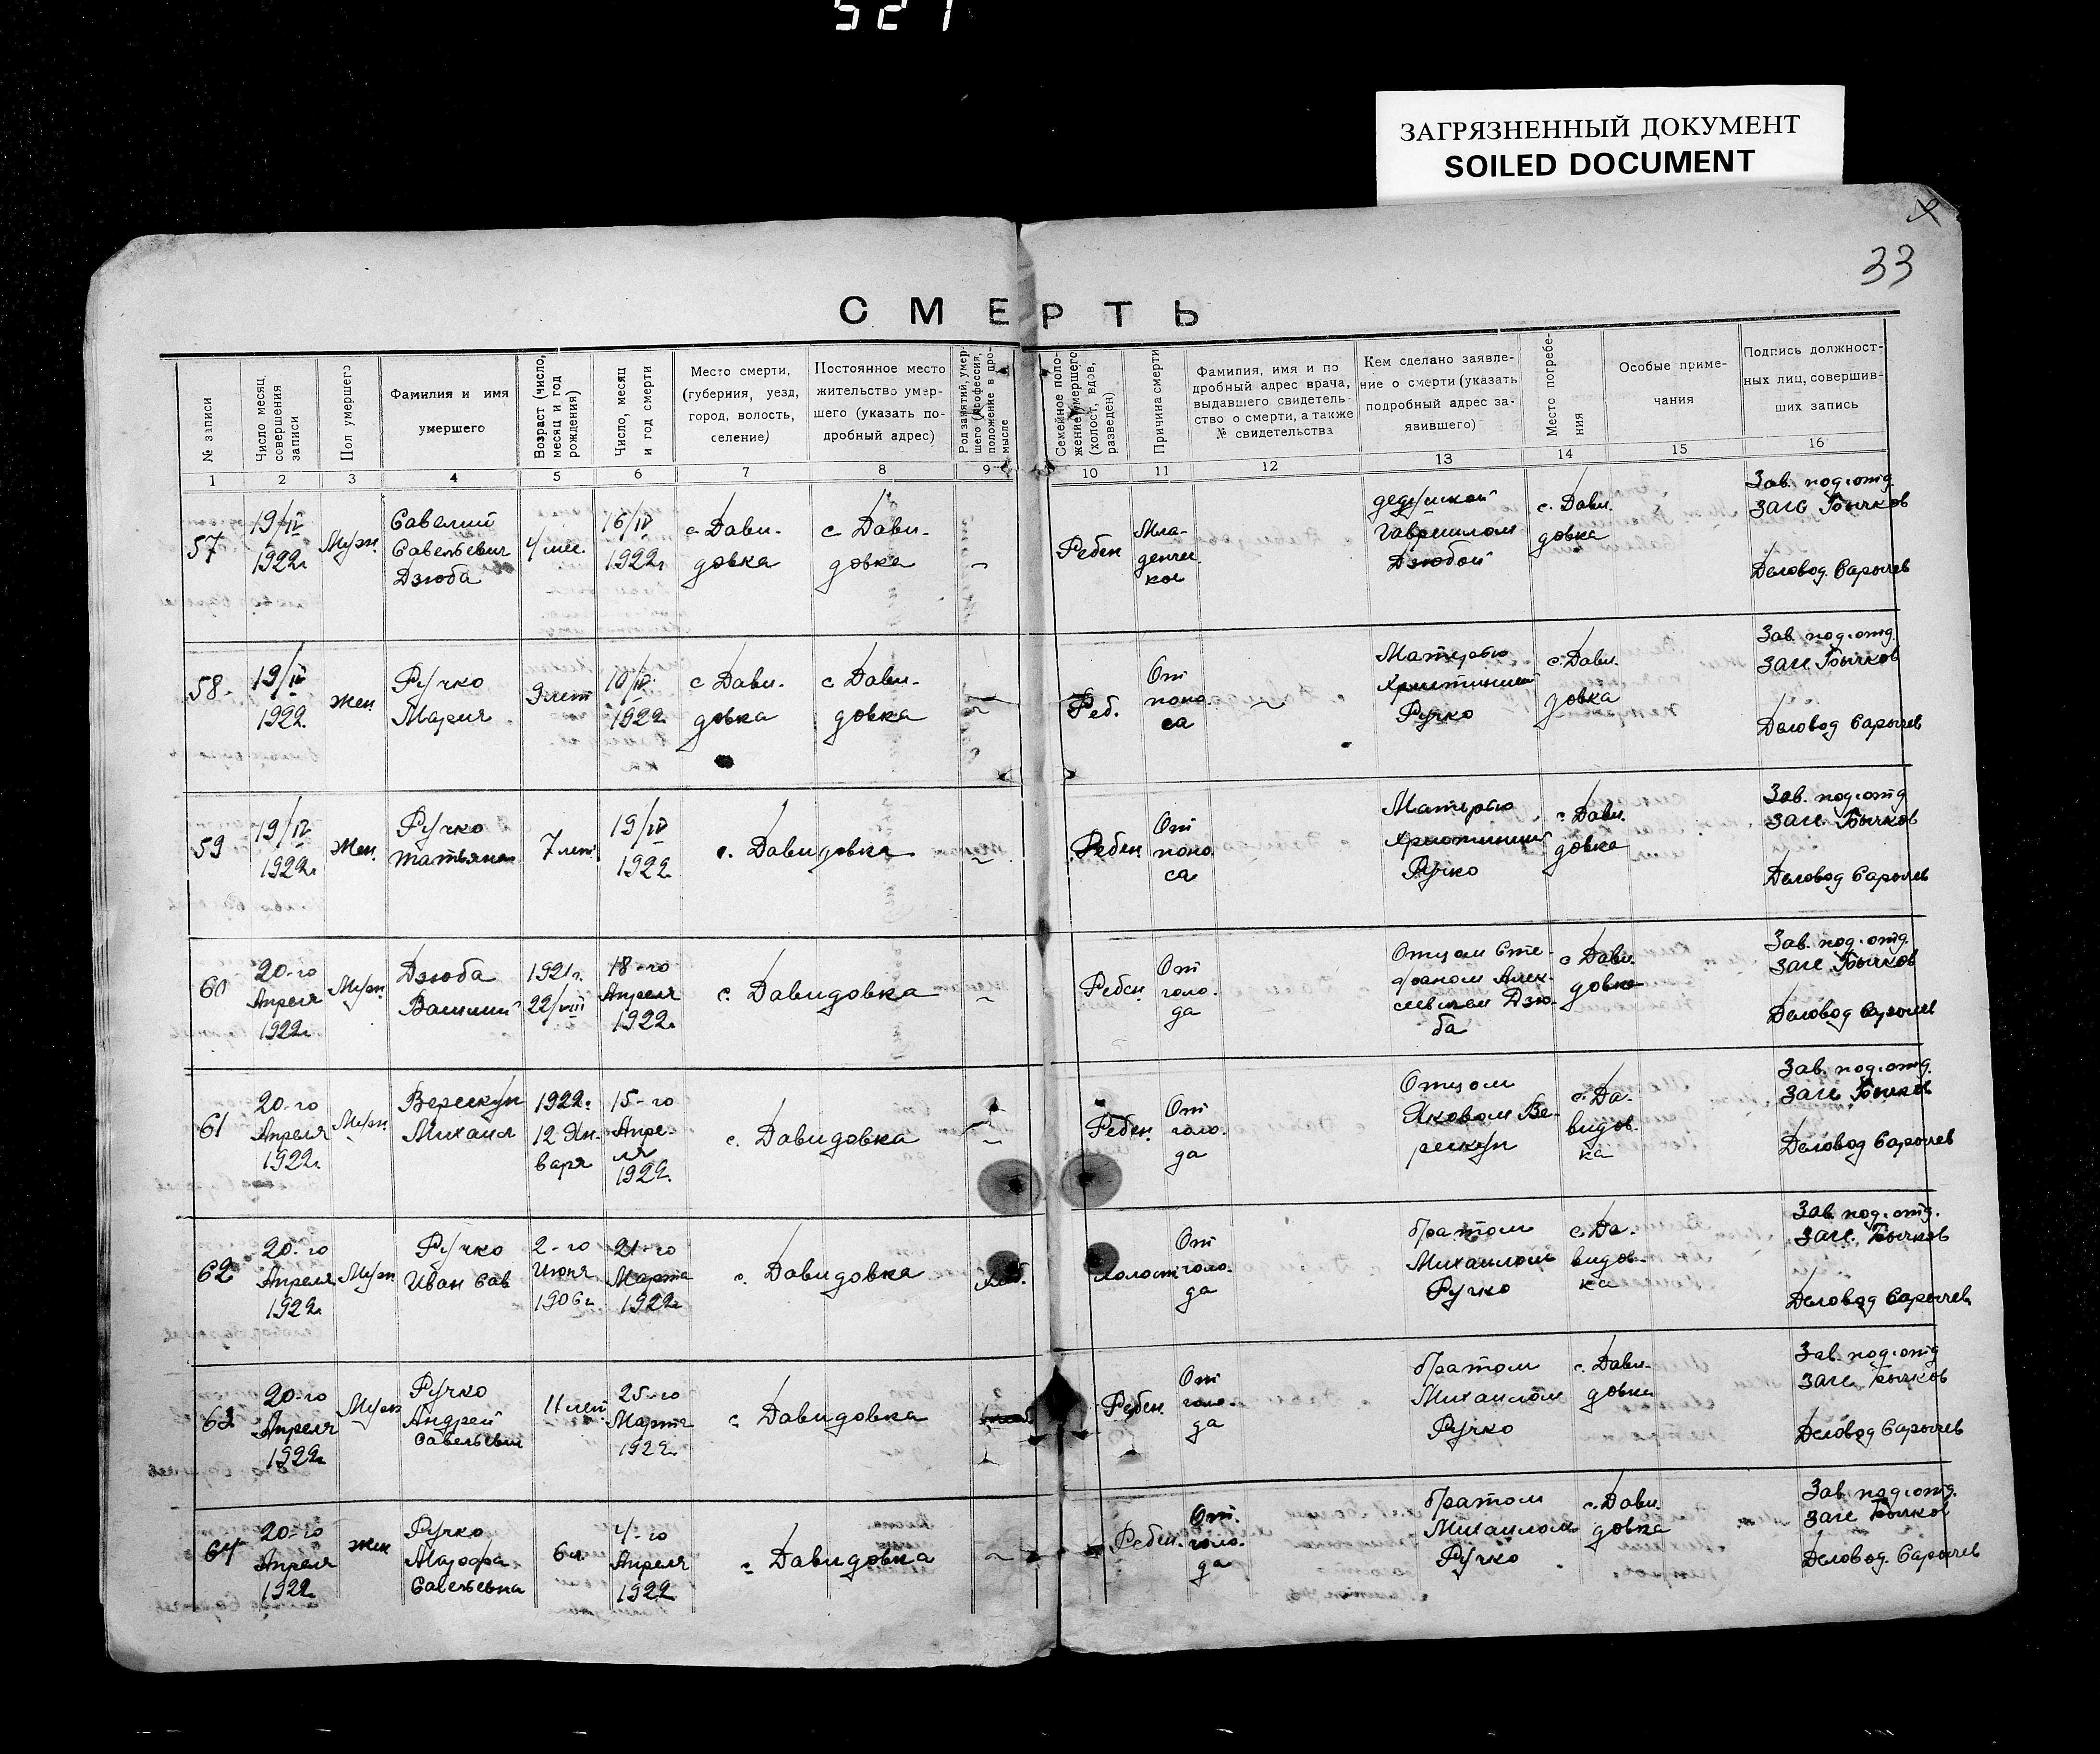 521
ЗАГРЯЗНЕННЫЙ ДОКУМЕНТ
SOILED DOCUMENT
33
СМЕРТЬ
№ записи
Число месяц
совершения
записи
Пол умершего
Фамилия и имя
умершего
Возраст (число,
месяц и год
рождения)
Число, месяц
и год смерти
Место смерти,
(губерния, уезд,
город, волость,
селение)
Постоянное место
жительство умер-
шего (указать по-
дробный адрес)
Род занятий, умер-
шего (профессия,
положение в про-
мысле
Семейное поло-
жение умершего,
(холост, вдов,
разведен)
Причина смерти
Фамилия, имя и по
дробный адрес врача,
выдавшего свидетель-
ство о смерти, а также
№ свидетельства
Кем сделано заявле-
ние о смерти (указать
подробный адрес за-
явившего)
Место погребе-
ния
Особые приме-
чания
Подпись должност-
ных лиц, совершив-
ших запись
1
2
3
4
5
6
7
8
9
10
11
12
13
14
15
16
57
19/IV
1922г
Муж.
Савелий
Савельевич
Дзюба
4 мес.
16/IV
1922г
с Дави-
довка
с Дави-
довка
Ребен
Мла-
денчес
кой
дедушкой
Гавриилом
Дзюбой
с. Дави-
довка
Зав. под.отд.
загс Бычков
Деловод. Сарычев
58
19/IV
1922.
Жен.
Ручко
Мария
9 лет
10/IV
1922.
с Дави-
довка
с Дави-
довка
Реб.
От
поно
са
Матерью
Христиньей
Ручко
с. Дави.
довка
Зав. под.отд.
загс Бычков
Деловод Сарычев
59
19/IV
1922г.
Жен.
Ручко
Татьяна
7 лет
19/IV
1922
с. Давидовка
Ребен
От
поно.
са
Матерью
Христиньей
Ручко
с Дави.
довка
Зав. под.отд
загс Бычков
Деловод Сарычев
60
20-го
Апреля
1922г.
Муж.
Дзюба
Василий
1921г.
22/VIII
18-го
Апреля
1922г.
с. Давидовка
Ребен.
От
голо.
да
Отцом Сте-
фаном Алек-
сеевичем Дзю-
ба
с Дави.
довка
Зав. под.отд.
загс Бычков
Деловод Сарычев
61
20-го
Апреля
1922г.
Муж.
Верескун
Михаил
1922г.
12 Ян-
варя
15-го
Апре-
ля
1922.
с. Давидовка
Ребен.
От
голо.
да
Отцом
Яковом Ве-
рескун
с. Да-
видов-
ка
Зав. под.отд.
загс Бычков
Деловод Сарычев
62
20-го
Апреля
1922г.
Муж
Ручко
Иван Сав
2-го
Июня
1906г
21-го
Марта
1922г
с. Давидовка
Холост
От
голо.
да
братом
Михаилом
Ручко
с Да-
видов-
ка
Зав. под.отд.
загс. Бычков
Деловод Сарычев
63
20-го
Апреля
1922г
Муж
Ручко
Андрей
Савельевич
11 лет
25-го
Марта
1922.
с Давидовка
Ребен.
От
голо-
да
братом
Михаилом
Ручко
с. Дави-
довка
Зав. под.отд
загс Бычков
Деловод Сарычев
64
20-го
Апреля
1922
Жен
Ручко
Савельевна
6 л.
4-го
Апреля
1922
с. Давидовка
Ребен.
От.
голо.
да
братом
Михаилом
Ручко
с. Дави.
довка
Зав под.отд.
загс Бычков
Деловод. Сарычев